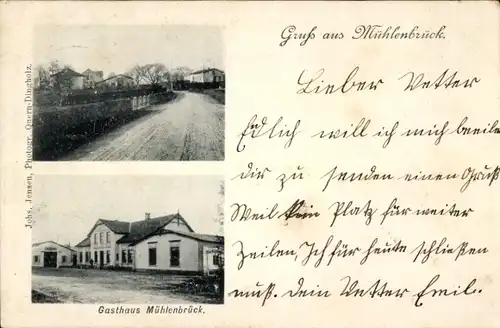 Gruß aus Mühlenbrück.
Lieber Vetter
Endlich will ich mich beeilen
dir zu senden einen Gruß
Weil kein Platz für weiter
Zeilen, Ich für heute schließen
muß. Dein Vetter Emil.
Johs. Jensen, Photogr. Quern-Dingholz.
Gasthaus Mühlenbrück.